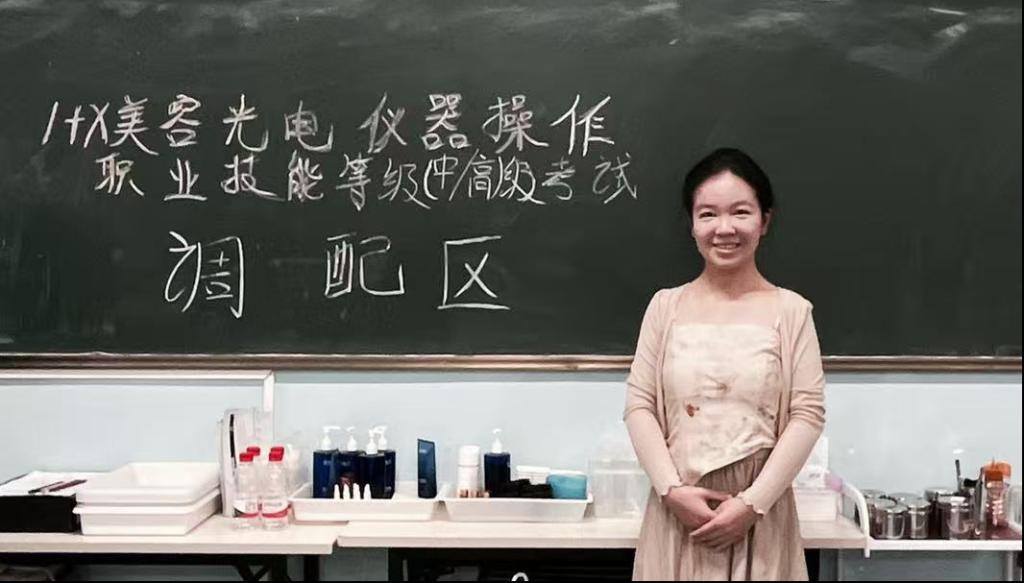 1+X美容光电仪器操作
职业技能等级(中/高)级考试
调配区